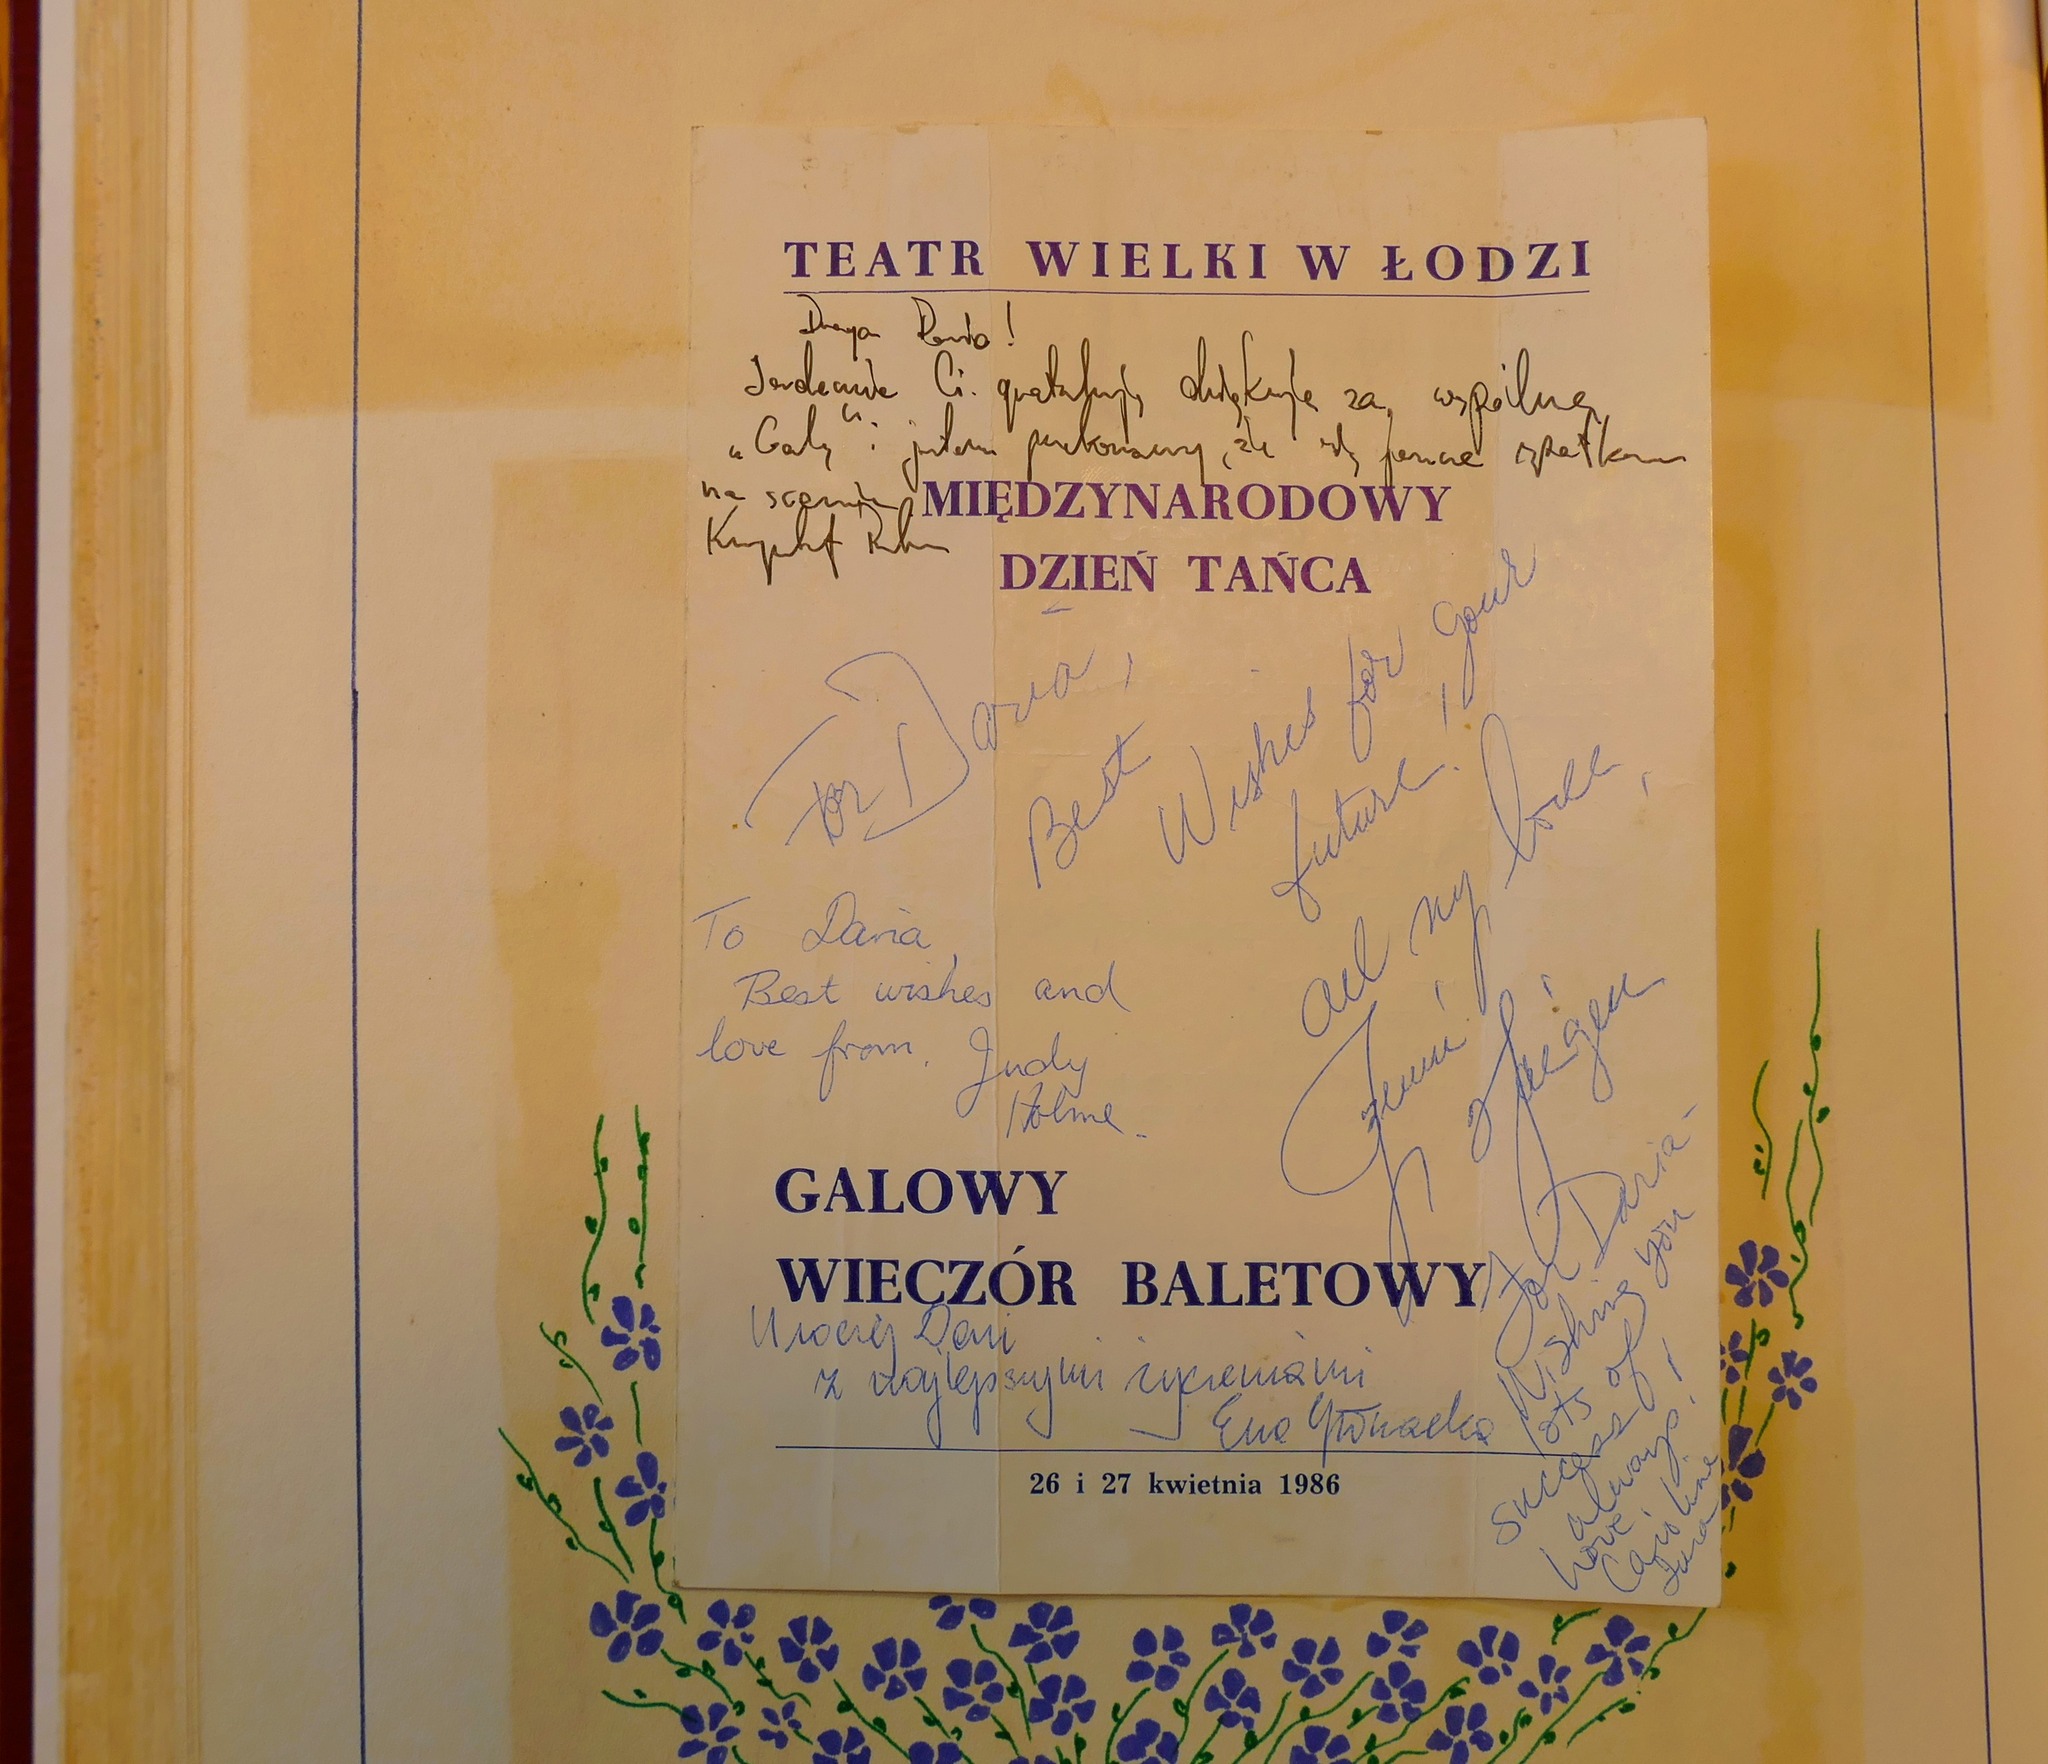 TEATR WIELKI W ŁODZI
Droga Dario!
Serdecznie Ci gratuluję dziękuję za wspólną
„Galę” i jestem przekonany, że się jeszcze spotkamy
na scenie.
Krzysztof
MIĘDZYNARODOWY
DZIEŃ TAŃCA
For Daria,
Best Wishes for your
future!
All my love,
To Daria,
Best wishes and
love from. Judy
Holme.
GALOWY
WIECZÓR BALETOWY
Uroczej Dari
z najlepszymi życzeniami
Ewa Głowacka
For Daria-
Wishing you
lots of
success!
always!
Love,
Caroline
26 i 27 kwietnia 1986